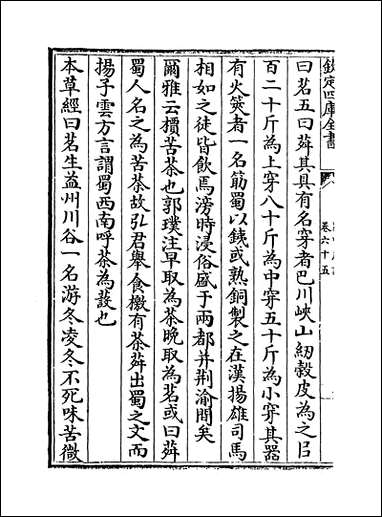 欽定四庫全書
卷六十五
曰茗五曰荈其具有名穿者巴川峽山紉穀皮為之㠯
百二十斤為上穿八十斤為中穿五十斤為小穿其器
有火筴者一名筯蜀以鐵或熟銅製之在漢揚雄司馬
相如之徒皆飲焉滂時浸俗盛于兩都并荆渝間矣
爾雅云檟苦荼也郭璞注早取為茶晚取為茗或曰荈
蜀人名之為苦茶故弘君舉食檄有茶荈出蜀之文而
揚子雲方言謂蜀西南呼茶為蔎也
本草經曰茗生益州川谷一名游冬凌冬不死味苦微